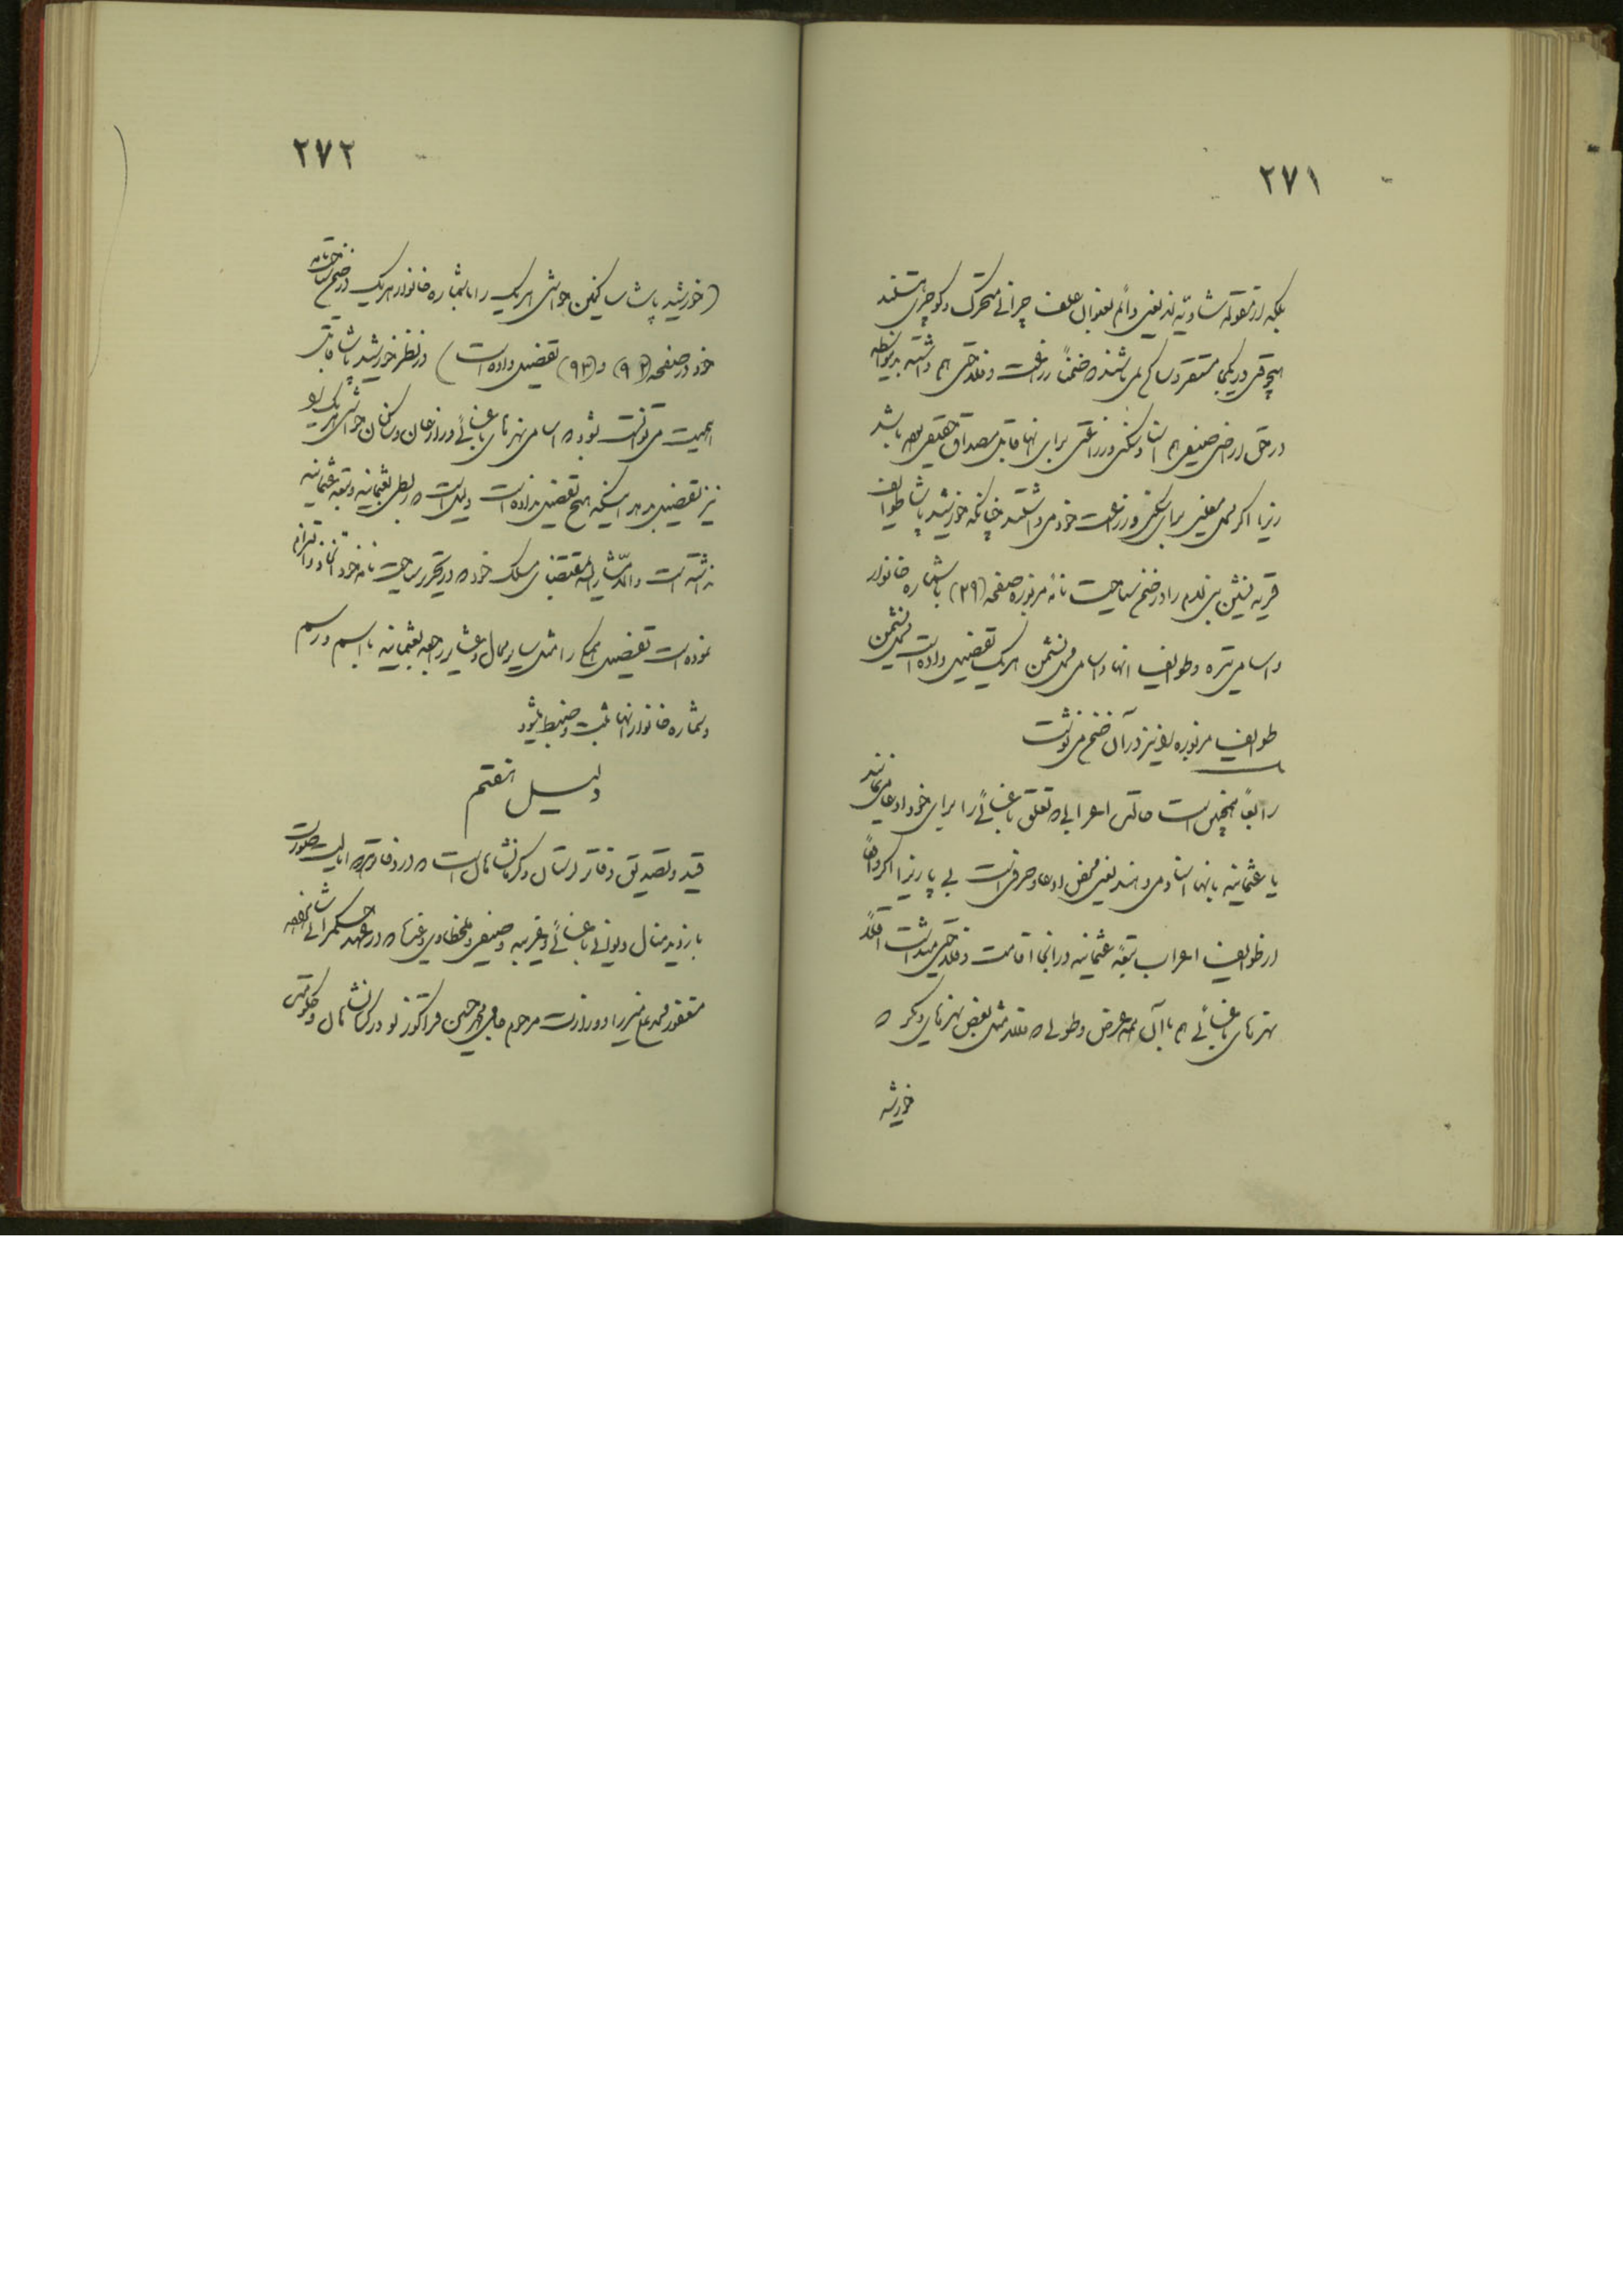 ۲۷۱
بلکه از مقوله شاویه‌اند یعنی دائم بعنوان علف چرانی متحرک و کوچری هستند
هیچوقتی در یکجا مستقر و ساکن نمی‌باشند که ضمناً زراعت و فلاحتی هم داشته بدینواسطه
در حق اراضی صیفی هم اسناد سکنی و زراعتی برای آنها قابل مصداق حقیقی نمی‌باشد
زیرا اگر محل معینی برای سکنی و زراعت خود می‌داشتند چنانکه خورشید پاشا طوایف
قریه نشین بنی لام را در ضمن سیاحت نامه مزبوره صفحه (۲۹) با شماره خانوار
و اسامی تیره و طوایف آنها و اسامی محل نشیمن هر یک تفصیل داده است محل نشیمن
طوایف مزبوره را نیز در آن ضمن می‌نوشت
رابعاً همچنین است حالت اعرابی که تعلق باغسائی را برای خود ادعا می‌نمایند
یا عثمانیه بآنها اسناد می‌دهند یعنی محض ادعا و حرفی است بی پا زیرا اگر واقعاً
از طوایف اعراب تبعه عثمانیه در آنجا اقامت و فلاحتی میداشت اقلاً
نهرهای باغسائی هم با آن همه عرض و طولی که مثل بعض نهرهای دیگر که
خورشید
۲۷۲
(خورشید پاشا ساکنین حواشی هر یک را با شماره خانوار هر یک در ضمن سیاحتنامه
خود در صفحه (۹۲) و (۹۳) تفصیل داده است) در نظر خورشید پاشا قابل
اهمیت می‌توانست بشود که اسامی نهرهای باغسائی و زارعان و ساکنان حواشی هر یک را
نیز تفصیل بدهد اینکه هیچ تفصیل نداده است دلیل است که ربطی بعثمانیه و تبعه عثمانیه
نداشته است والا مشارالیه بمقتضای مسلک خود که در تحریر سیاحت نامه خود اتخاذ و التزام
نموده است تفصیل آنجا را مثل سایر محال و عشایر راجعه بعثمانیه با اسم و رسم
و شماره خانوار آنها ثبت و ضبط می‌نمود
دلیل هفتم
قید و تصدیق دفاتر لرستان و کرمانشاهان است که در دفاتر آن ایالت صورت
بازدید منال دیوانی باغسائی و غربیه و صیفی و ملخطاوی و غیره که در عهد حکمرانی شاهزاده
مغفور محمد علی میرزا و وزارت مرحوم حاجی محمد حسین قراگوزلو در کرمانشاهان و حکومت